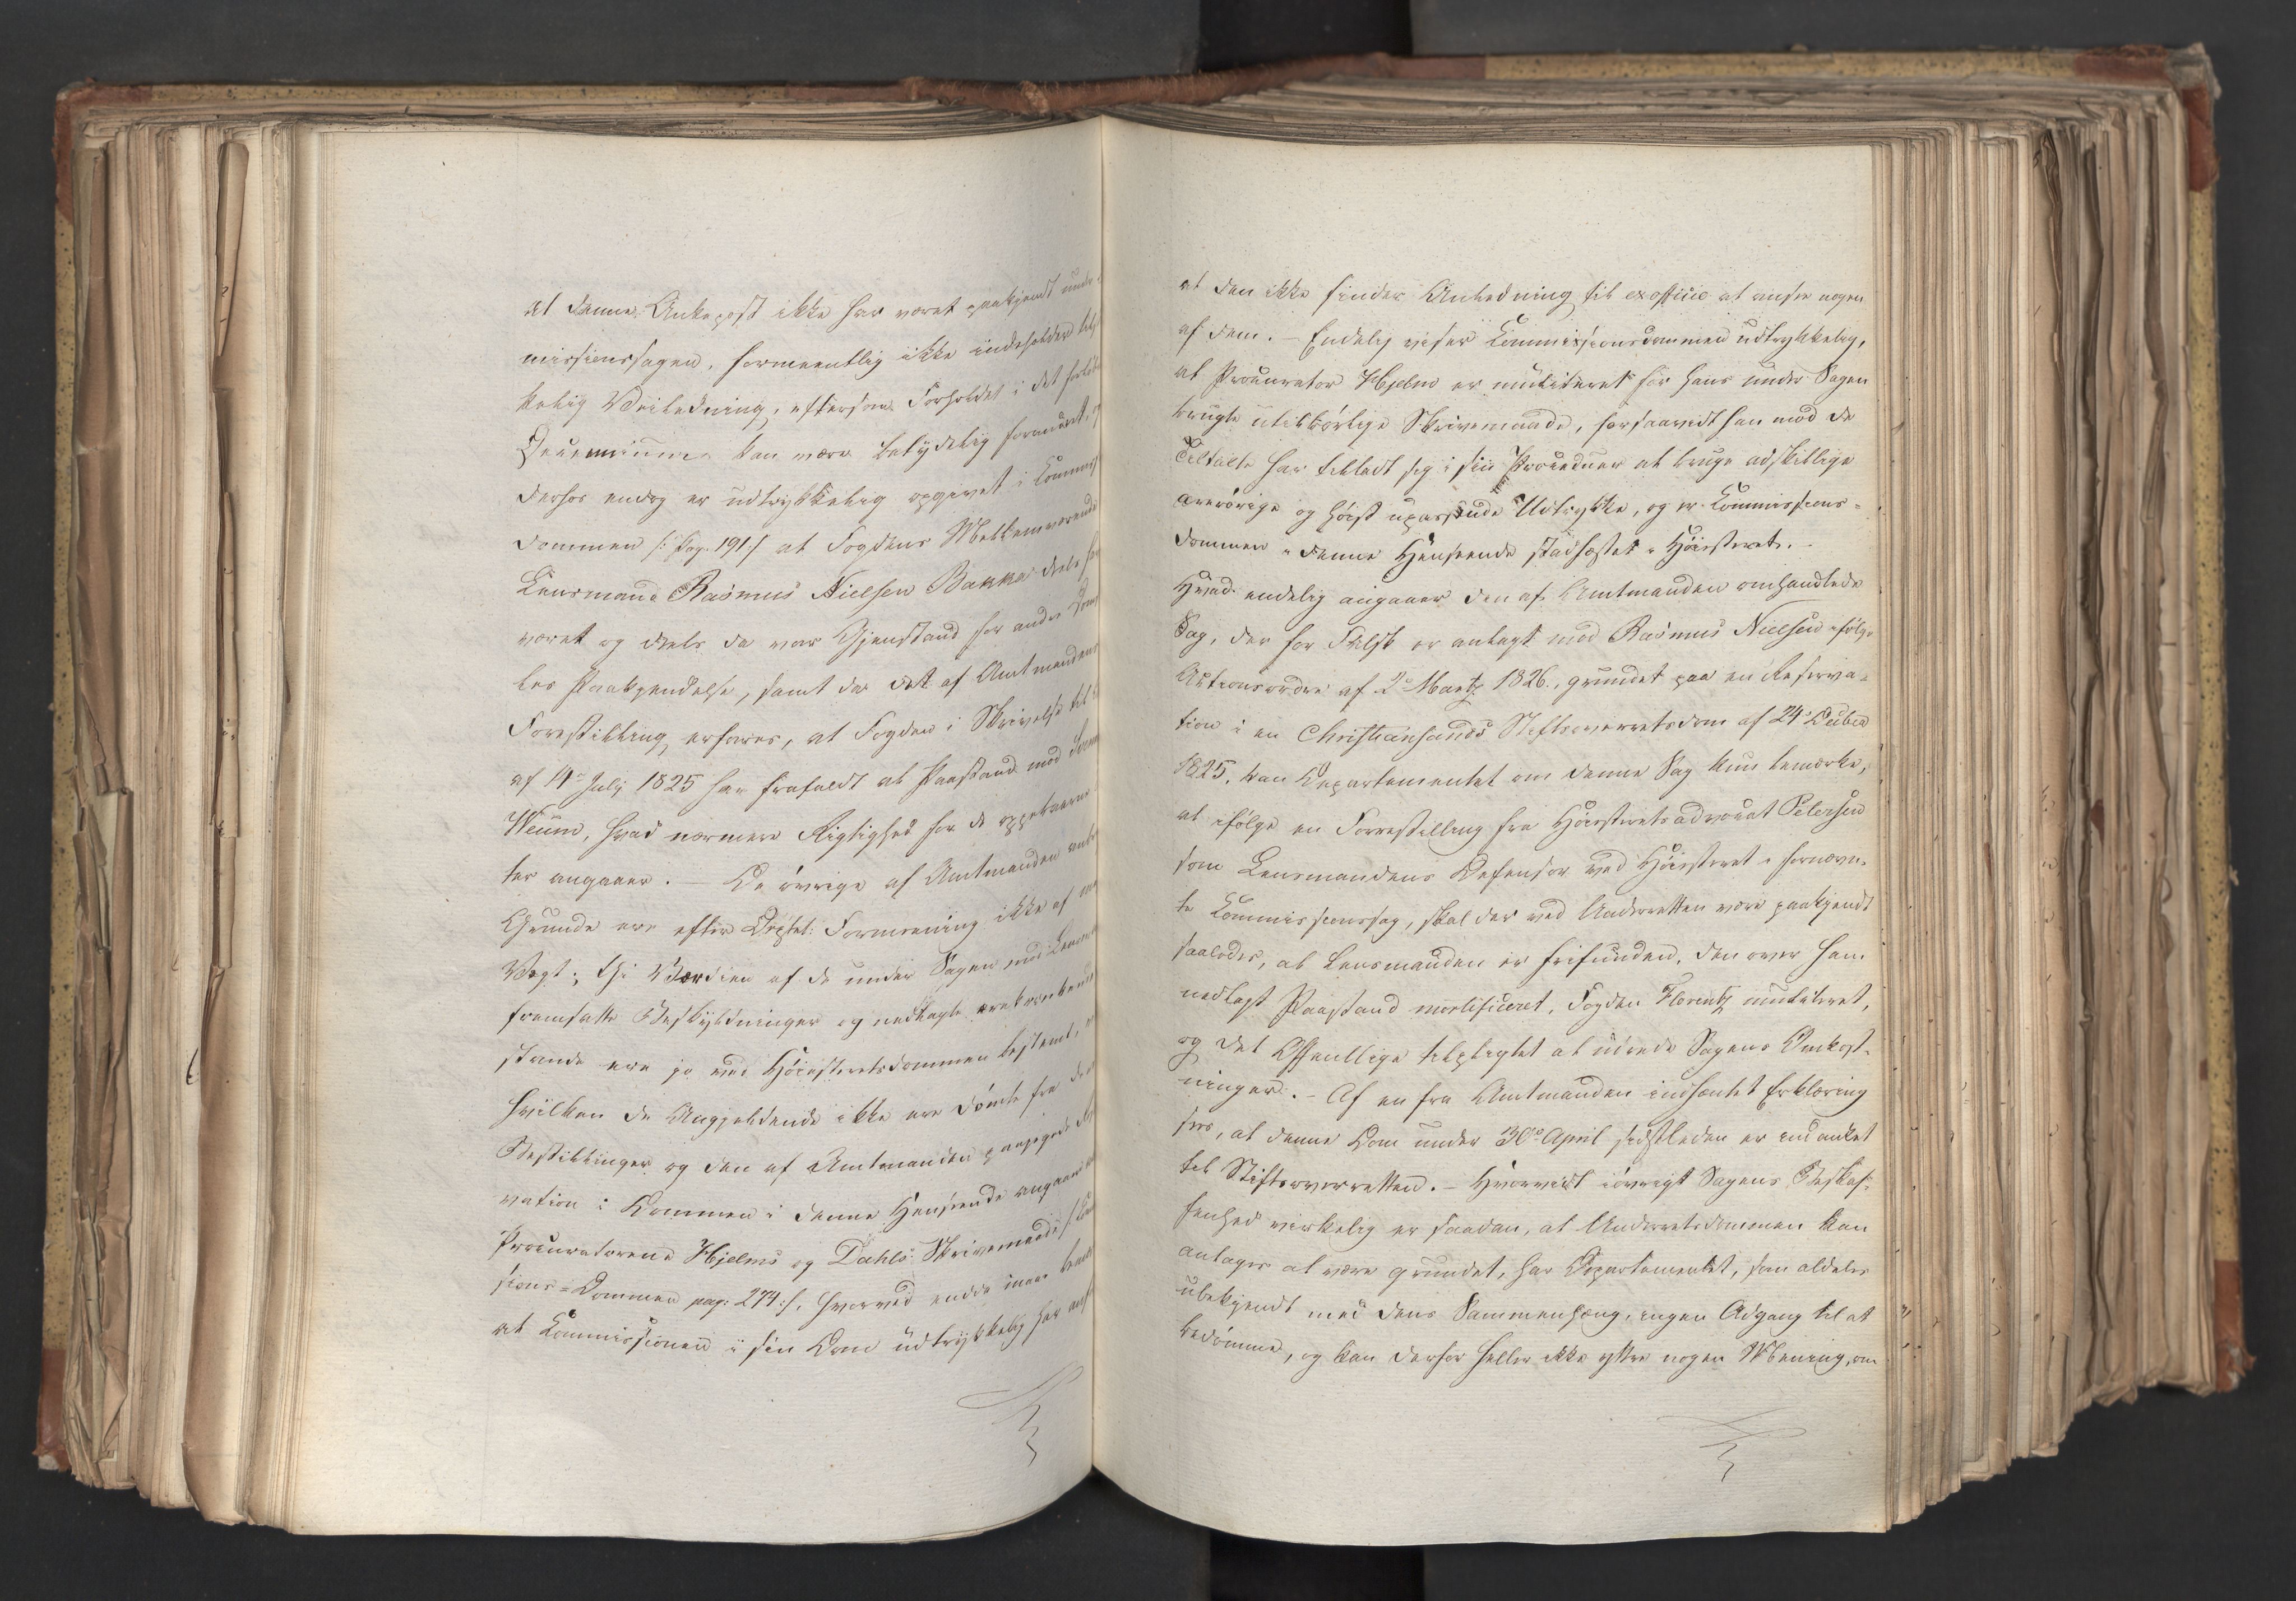 at denne Ankepost ikke har været paakjendt under
missionssagen, formeentlig ikke indeholder til
kelig Veiledning, eftersom Forholdet i det forløb
Decennium kan være betydelig forandret,
derhos endog er udtrykkelig opgivet i Commis
dommen /: Pag. 191 :/ at Fogdens Mellemværende
Lensmand Rasmus Nielsen Bakka deels har
været og deels da var Gjenstand for andre Dom
les Paakjendelse, samt da det af Amtmandens
Forestilling erfares, at Fogden i Skrivelse til
af 14de July 1825 har frafaldt al Paastand mod
Weum, hvad nærmere Rigtighed for de oppebaarne
ter angaaer. — De øvrige af Amtmanden anbr
Grunde ere efter Deptets: Formening ikke af
Vægt; thi Værdien af de under Sagen mod Lensm
fremsatte Beskyldninger og nedlagte ærekrænkende
stande ere jo ved Høiesteretsdommen bestemt,
hvilken de Angjeldende ikke ere dømte fra de
Bestillinger og den af Amtmanden paapegede
vation i Dommen i denne Henseende angaaer
Procuratorene Hjelms og Dahls Skrivemaade /:
sions-Dommen pag: 274 :/, hvorved endda maae
at Commissionen i sin Dom udtrykkelig har
at den ikke finder Anledning til ex officio at ansee nogen
af dem. — Endelig viser Commissionsdommen udtrykkelig,
at Procurator Hjelm er mulcteret for hans under Sagen
brugte utilbørlige Skrivemaade, forsaavidt han mod de
Tiltalte har tilladt sig i sin Procedure at bruge adskillige
ærerørige og høist upassende Udtrykke, og er Commissions-
dommen i denne Henseende stadfæstet i Høiesteret. —
Hvad endelig angaaer den af Amtmanden omhandlede
Sag, der for Falsk er anlagt mod Rasmus Nielsen ifølge
Actionsordre af 2den Martz 1826, grundet paa en Reserva-
tion i en Christiansands Stiftsoverretsdom af 24de
1825, kan Departementet om denne Sag kun bemærke,
at ifølge en Forestilling fra Høiesteretsadvocat Petersen
som Lensmandens Defensor ved Høiesteret i fornævn-
te Commissionssag, skal der ved Underretten være paakjendt
saaledes, at Lensmanden er frifunden, den over ham
nedlagt Paastand mortificeret, Fogden Florentz mulcteret,
og det Offentlige tilpligtet at udrede Sagens Omkost-
ninger. — Af en fra Amtmanden indhentet Erklæring
sees, at denne Dom under 30te April sidstleden er indanket
til Stiftsoverretten. — Hvorvidt iøvrigt Sagens Beskaf-
fenhed virkelig er saadan, at Underretsdommen kan
antages at være grundet, har Departementet, som aldeles
ubekjendt med dens Sammenhæng, ingen Adgang til at
bedømme, og kan derfor heller ikke yttre nogen Mening, om